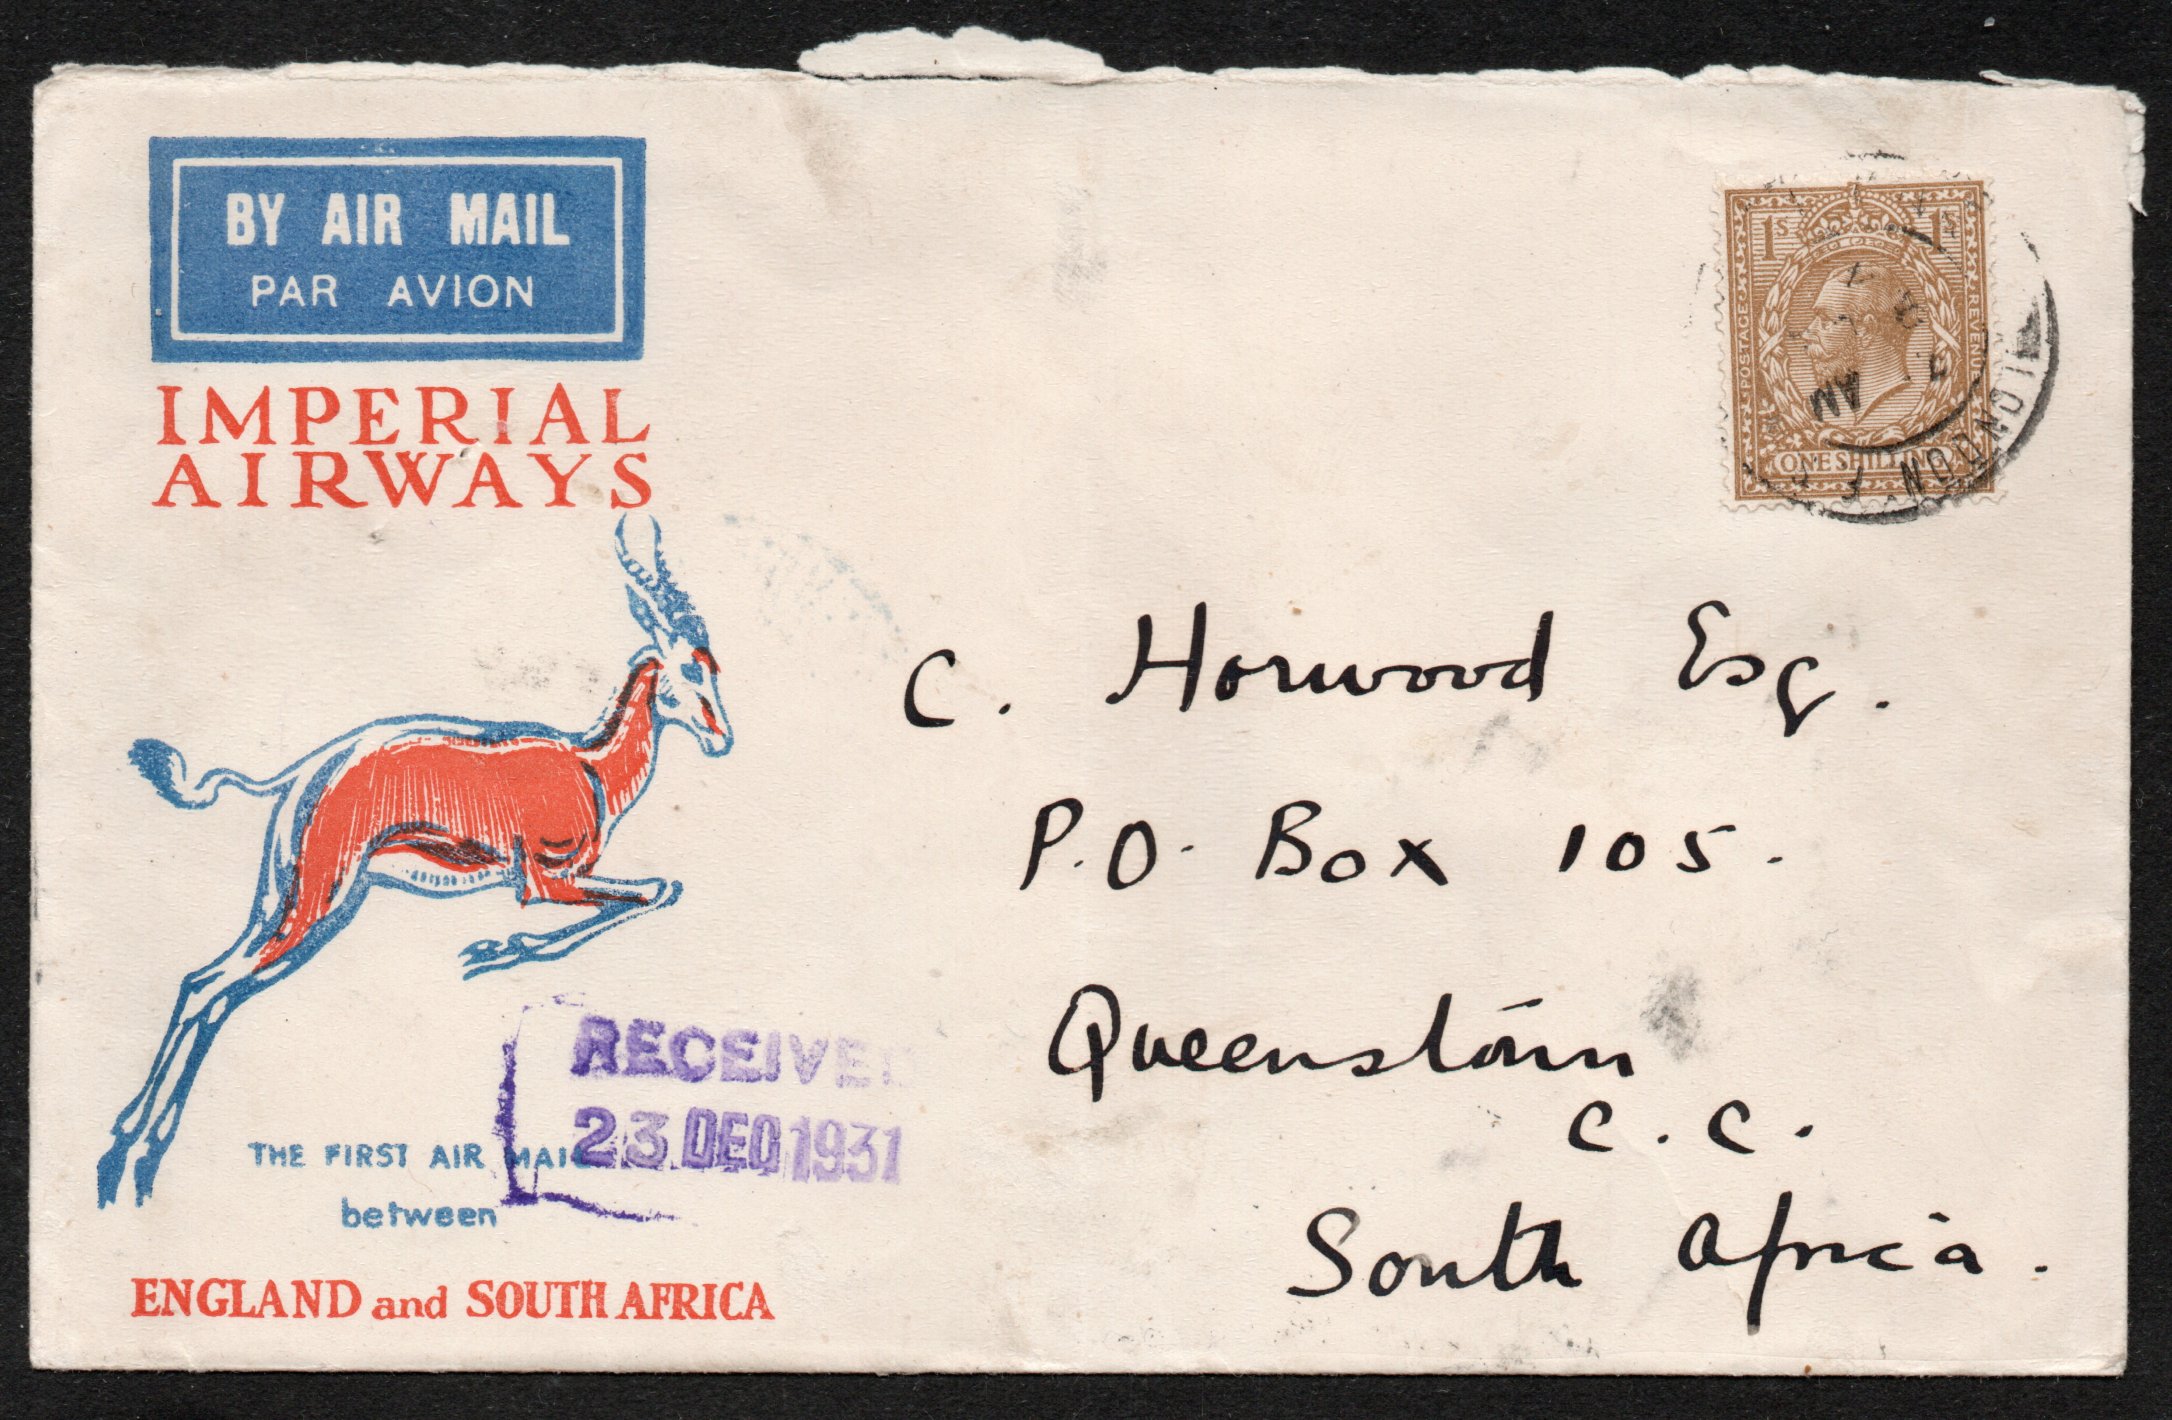 BY AIR MAIL
PAR AVION
IMPERIAL
AIRWAYS
1S 1S
POSTAGE REVENUE
ONE SHILLING
AM
LONDON F.S.
C. Horwood Esq.
P.O. Box 105.
Queenstown
C.C.
South Africa.
RECEIVED
23 DEC 1931
THE FIRST AIR MAIL
between
ENGLAND and SOUTH AFRICA